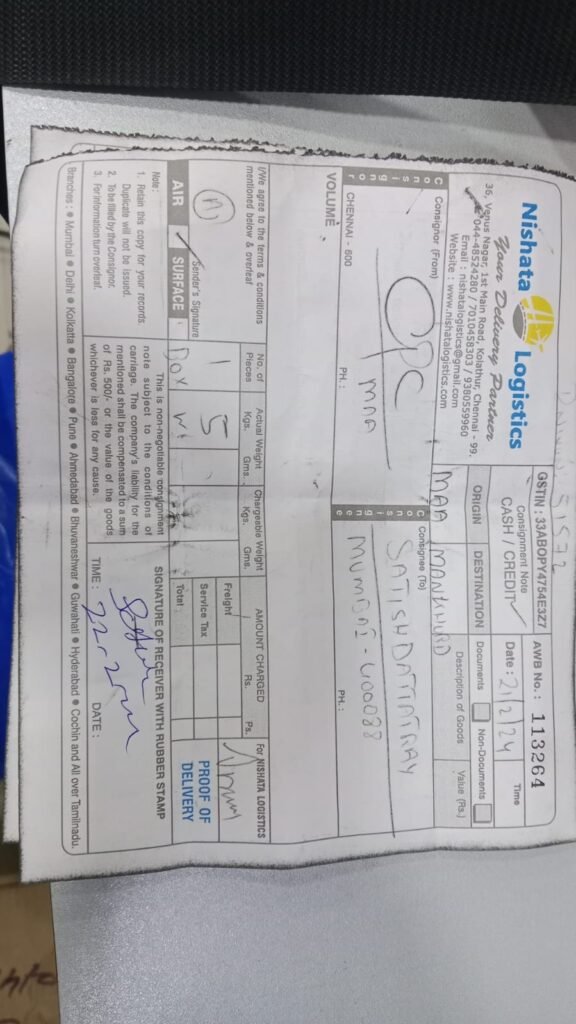 Nishata Logistics
Your Delivery Partner
36, Venus Nagar, 1st Main Road, Kolathur, Chennai - 99.
044-48524280 / 7010458303 / 9380559960
Email : nishatalogistics@gmail.com
Website : www.nishatalogistics.com
GSTIN : 33ABOPY4754E3Z7
Consignment Note
CASH / CREDIT
AWB No. : 113264
Date : 21/2/24
Time
ORIGIN
DESTINATION
Documents
Non-Documents
MAA
Description of Goods
Value (Rs.)
Consignor
Consignor (From)
CPC
MAA
CHENNAI - 600
PH. :
Consignee
Consignee (To)
SATISH DATTATRAY
MUMBAI - 400088
PH. :
VOLUME
(/We agree to the terms & conditions
mentioned below & overleaf
Sender's Signature
No. of
Pieces
Actual Weight
Kgs. Gms.
Chargeable Weight
Kgs. Gms.
AMOUNT CHARGED
Rs. Ps.
For NISHATA LOGISTICS
1
5
Box
Freight
Service Tax
Total :
PROOF OF
DELIVERY
AIR
SURFACE
Note :
1. Retain this copy for your records.
Duplicate will not be issued.
2. To be filled by the Consignor.
3. For information turn overleaf.
This is non-negotiable consignment
note subject to the conditions of
carriage. The company's liability for the
mentioned shall be compensated to a sum
of Rs. 500/- or the value of the goods
whichever is less for any cause.
SIGNATURE OF RECEIVER WITH RUBBER STAMP
TIME :
DATE :
Branches : ● Mumbai ● Delhi ● Kolkatta ● Bangalore ● Pune ● Ahmedabad ● Bhuvaneshwar ● Guwahati ● Hyderabad ● Cochin and All over Tamilnadu.